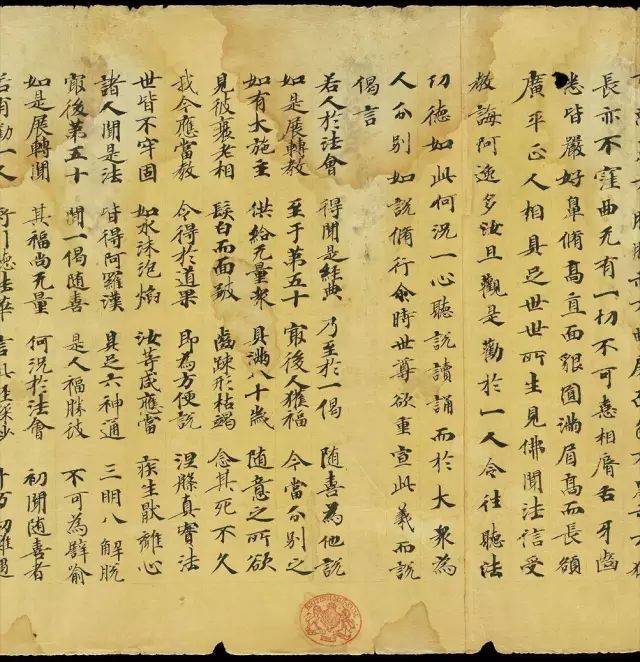 長亦不窪曲无有一切不可憙相脣舌牙齒
悉皆嚴好鼻脩髙直面貌圓滿眉髙而長頟
廣平正人相具足世世所生見佛聞法信受
教誨阿逸多汝且觀是勸於一人令往聽法
功德如此何況一心聽說讀誦而於大衆為
人分別如說脩行尒時世尊欲重宣此義而說
偈言
若人於法會 得聞是經典 乃至於一偈 隨喜為他說
如是展轉教 至于第五十 㝡後人獲福 今當分別之
如有大施主 供給无量衆 具滿八十歲 隨意之所欲
見彼衰老相 髮白而面皺 齒踈形枯竭 念其死不久
我今應當教 令得於道果 即為方便說 涅槃真實法
世皆不牢固 如水沫泡焰 汝等咸應當 疾生猒離心
諸人聞是法 皆得阿羅漢 具足六神通 三明八解脫
㝡後第五十 聞一偈隨喜 是人福勝彼 不可為譬喻
如是展轉聞 其福尚无量 何況於法會 初聞隨喜者
若有勸一人